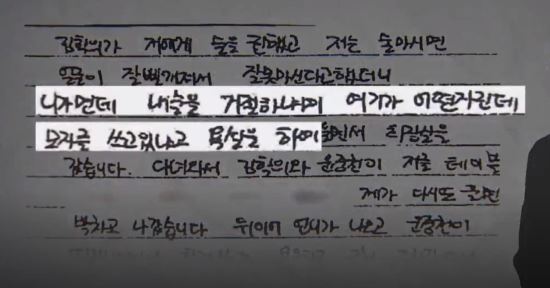 김학의가 저에게 술을 권했고 저는 술마시면
얼굴이 잘빨개져서 잘못마신다고했더니
니가먼데 내술을 거절하냐며 여기가 어떤자린데
모자를 쓰고있냐고 욕설을 하여 화장실을
갔습니다. 다녀와서 김학의와 윤중천이 저를 테이블
제가 다시또
박차고 나갔습니다 뒤이어 언니가 나오고 윤중천이